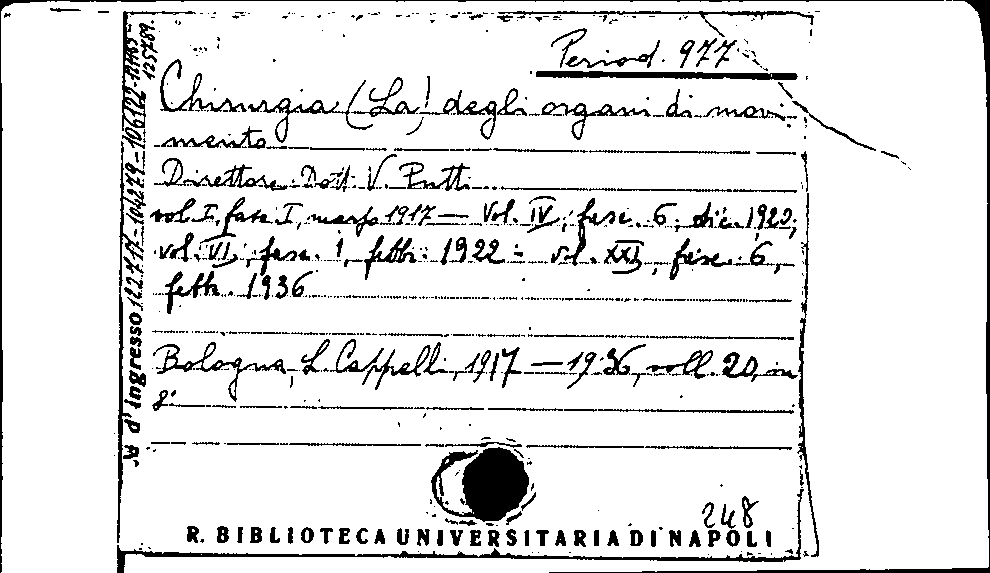 Period. 977
Chirurgia (La) degli organi di movi-
mento
Direttore: Dott. V. Putti
vol. I, fasc. I, marzo 1917 — Vol. IV, fasc. 6, dic. 1920;
vol. VI, fasc. 1, febbr. 1922 = vol. XXI, fasc. 6,
febbr. 1936
Bologna, L. Cappelli, 1917 — 1936, voll. 20, in
8°
248
R. BIBLIOTECA UNIVERSITARIA DI NAPOLI
N° d'ingresso 122717-104279-106102-
125789.